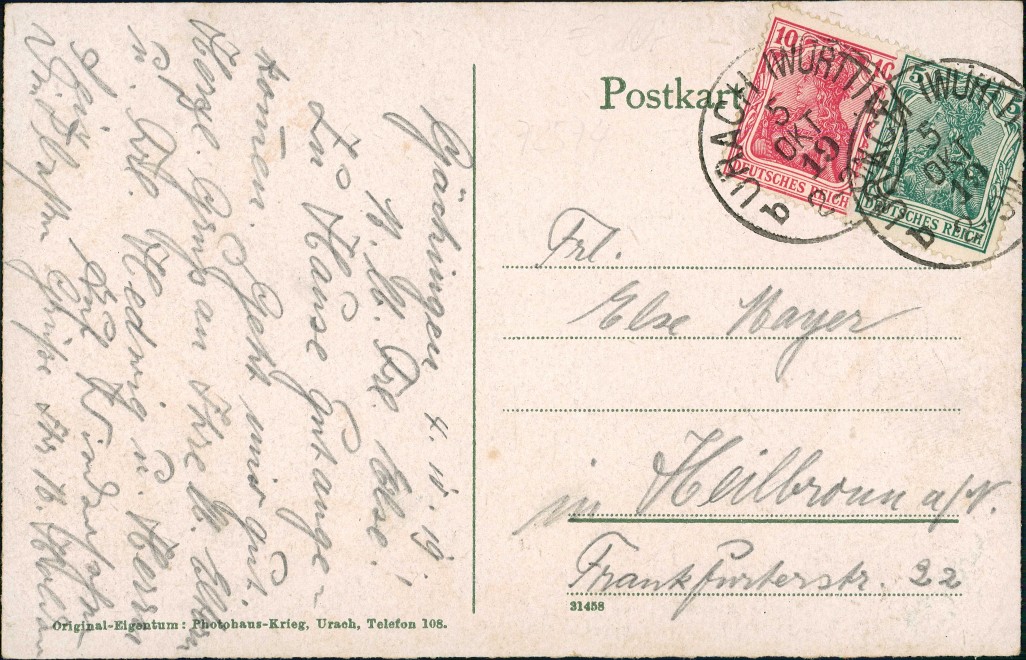 Gächingen 4.10.19.
M. lb. Frl. Else!
Zu Hause gut ange-
kommen. Geht mir gut.
Herzl. Gruß an Ihre lb. Eltern
u. Frl. Hedwig u. Herrn
Auf Wiedersehn
Grüße Ihr
Original-Eigentum: Photohaus-Krieg, Urach, Telefon 108.
Postkarte
10 10
DEUTSCHES REICH
5 5
DEUTSCHES REICH
URACH (WÜRTT)
5
OKT
19
URACH (WÜRTT)
5
OKT
19
Frl.
Else Mayer
in Heilbronn a/N.
Frankfurterstr. 22
31458